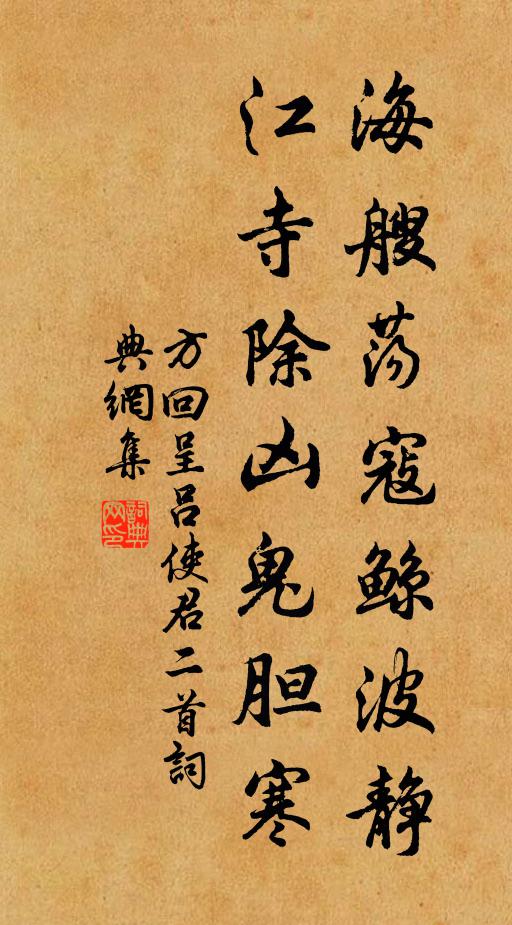 海艘荡寇鲸波静
江寺除凶鬼胆寒
方回呈吕使君二首詞
典網集
詞典网印